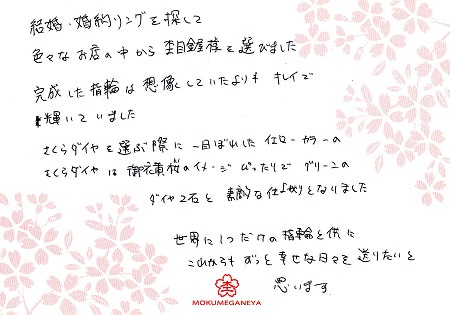 結婚・婚約リングを探して
色々なお店の中から杢目金屋様を選びました
完成した指輪は想像していたよりも キレイで
輝いていました
さくらダイヤを選ぶ際に一目ぼれしたイエローカラーの
さくらダイヤは御衣黄桜のイメージぴったりで グリーンの
ダイヤ2石と 素敵な仕上がりとなりました
世界に1つだけの指輪と供に
これからもずっと幸せな日々を送りたいと
思います。
MOKUMEGANEYA